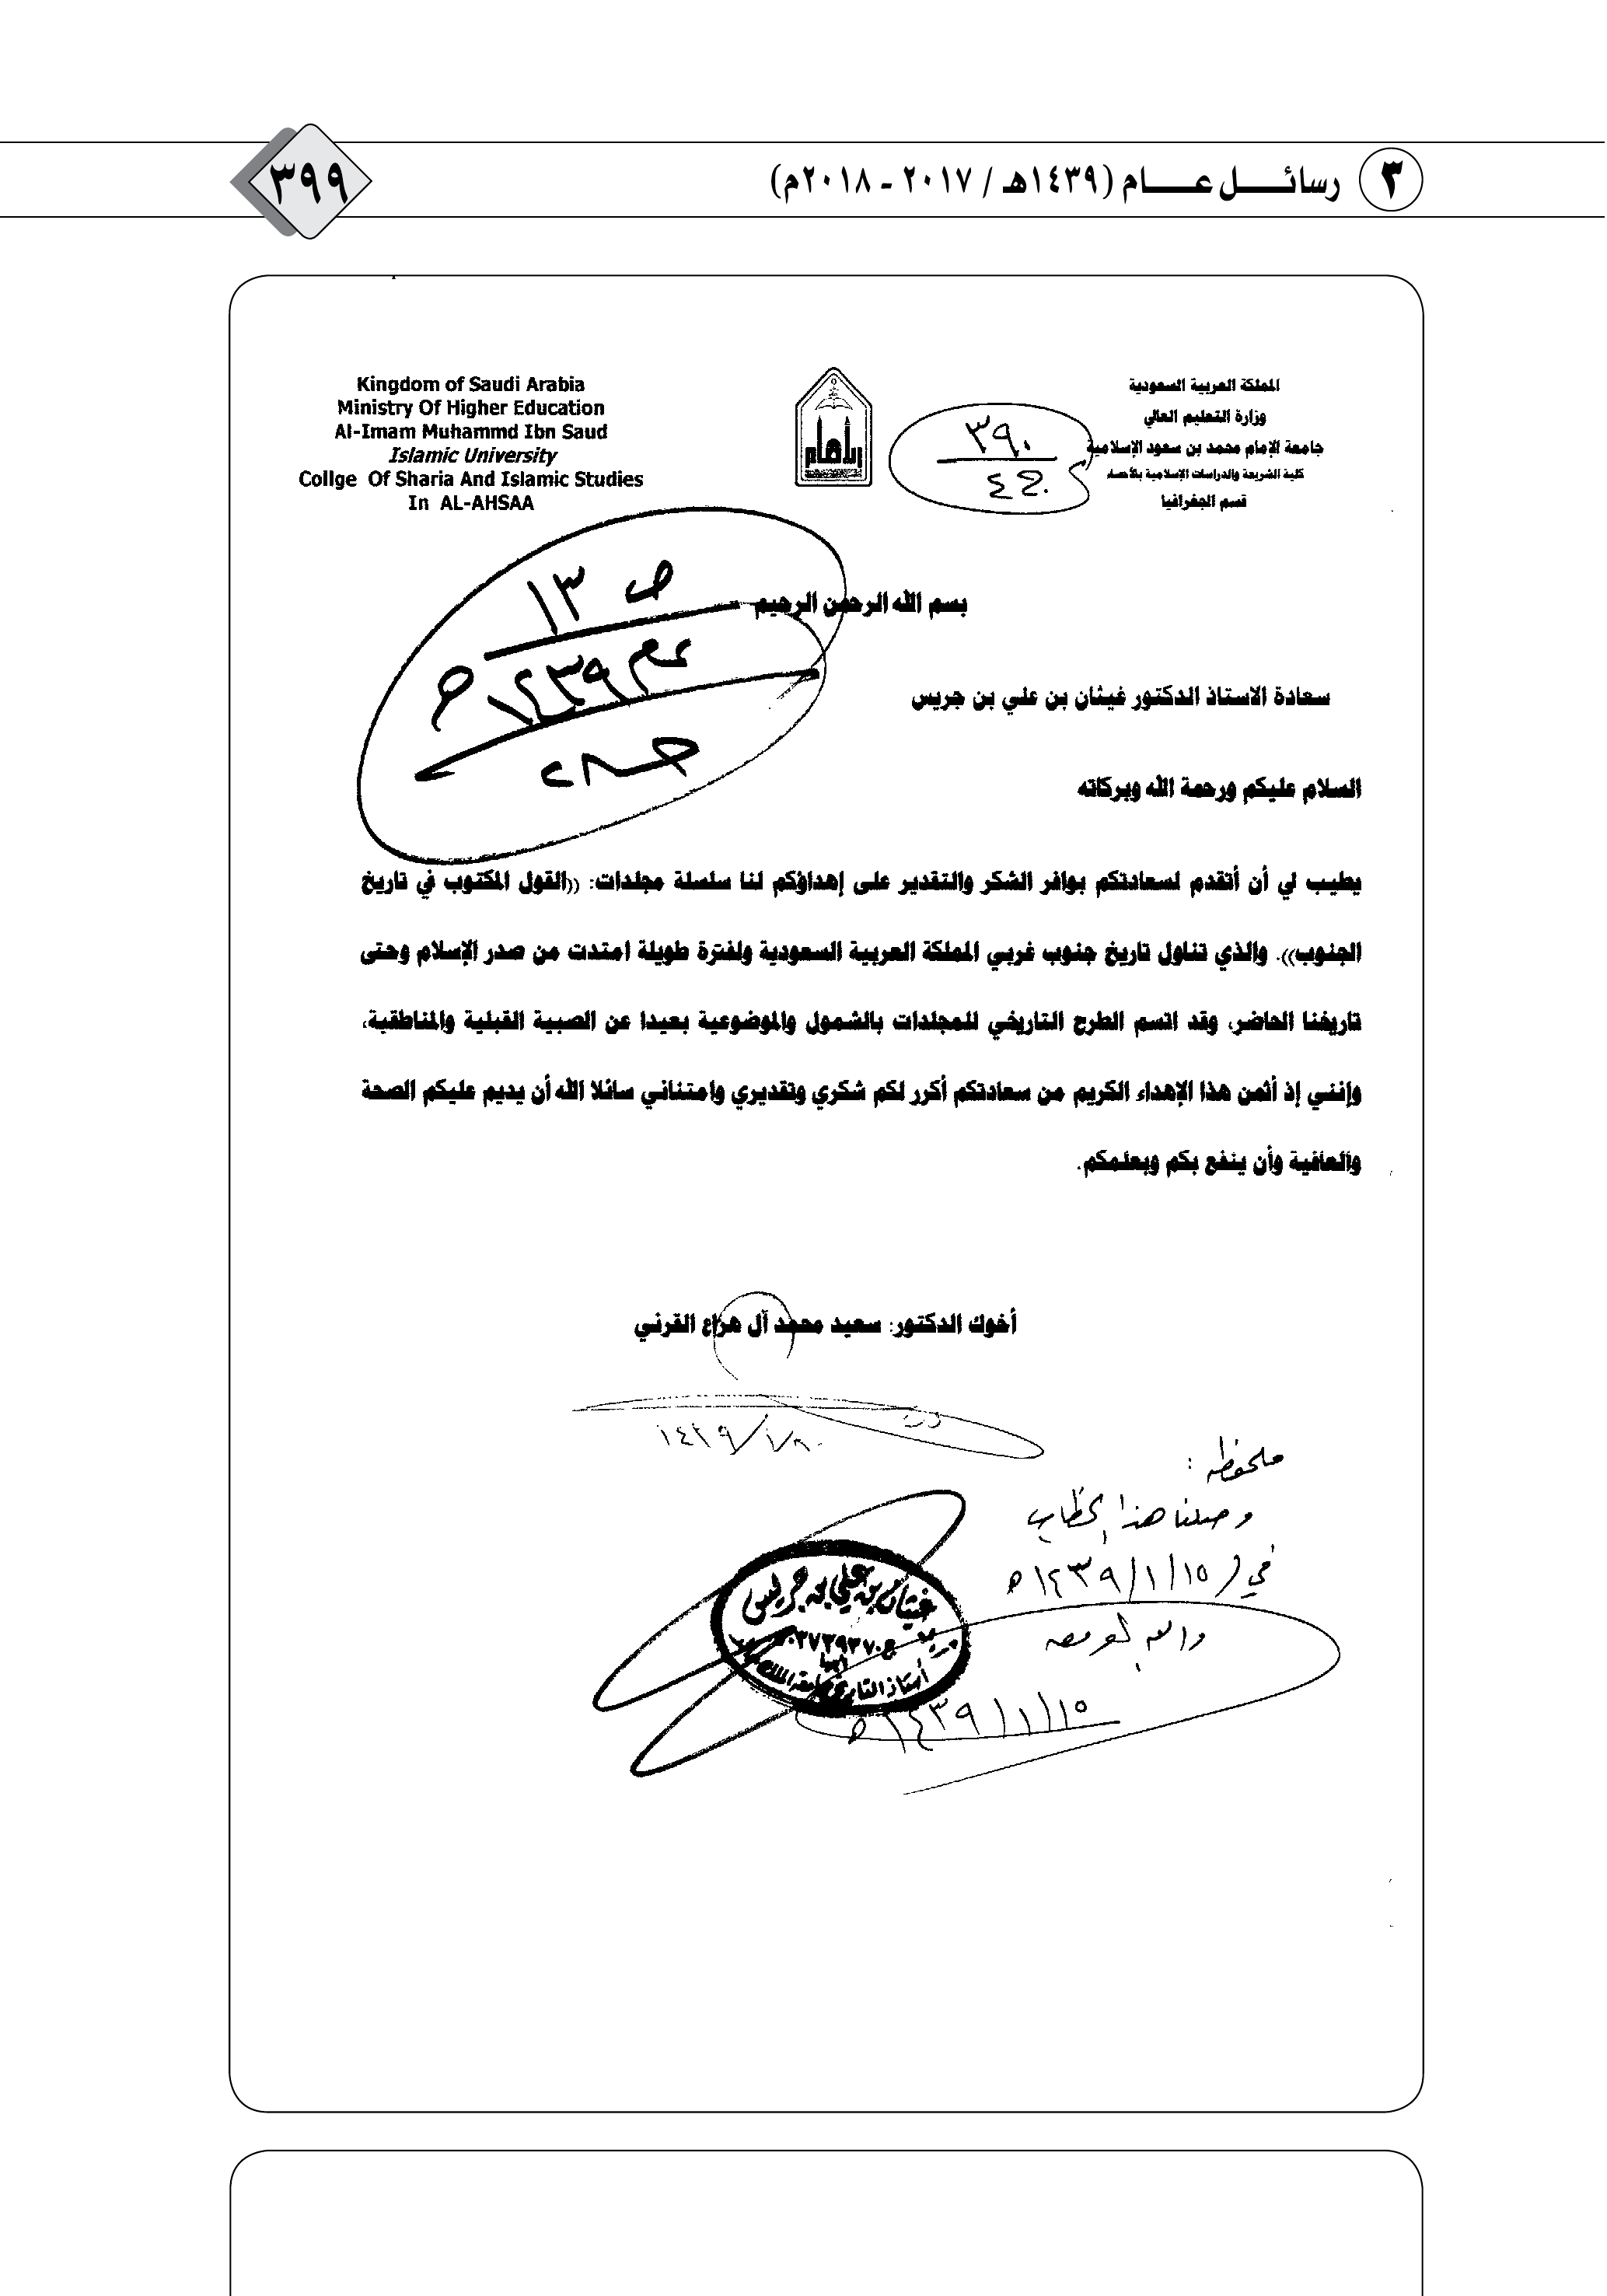 ٣ رسائـــل عـــام (١٤٣٩هـ / ٢٠١٧ - ٢٠١٨م)
٣٩٩
المملكة العربية السعودية
وزارة التعليم العالي
جامعة الإمام محمد بن سعود الإسلامية
كلية الشريعة والدراسات الإسلامية بالأحساء
قسم الجغرافيا
٣٩٠
Kingdom of Saudi Arabia
Ministry Of Higher Education
Al-Imam Muhammd Ibn Saud
Islamic University
Collge Of Sharia And Islamic Studies
In AL-AHSAA
ص ١٣
١٤٣٩ هـ
بسم الله الرحمن الرحيم
سعادة الاستاذ الدكتور غيثان بن علي بن جريس
السلام عليكم ورحمة الله وبركاته
يطيب لي أن أتقدم لسعادتكم بوافر الشكر والتقدير على إهداؤكم لنا سلسلة مجلدات: ((القول المكتوب في تاريخ
الجنوب)). والذي تناول تاريخ جنوب غربي المملكة العربية السعودية ولفترة طويلة امتدت من صدر الإسلام وحتى
تاريخنا الحاضر، وقد اتسم الطرح التاريخي للمجلدات بالشمول والموضوعية بعيدا عن الصبية القبلية والمناطقية،
وإنني إذ أثمن هذا الإهداء الكريم من سعادتكم أكرر لكم شكري وتقديري وامتناني سائلا الله أن يديم عليكم الصحة
والعافية وأن ينفع بكم وبعلمكم.
أخوك الدكتور: سعيد محمد آل هزاع القرني
ملحوظه :
وصلنا هذا الخطاب
في ١٤٣٩/١/١٥هـ
والله الموفق
غيثان بن علي بن جريس
أستاذ التاريخ بجامعة الملك خالد
١٤٣٩/١/١٥هـ